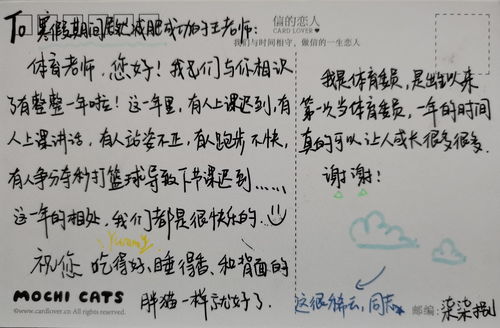 To 寒假期间居然减肥成功的王老师:
体育老师,您好!我们与你相识
了有整整一年啦!这一年里,有人上课迟到,有
人上课讲话,有人站姿不正,有人跑步不快,
有人争分夺秒打篮球导致下节课迟到......
这一年的相处,我们都是很快乐的.
Yummy
祝您 吃得好、睡得香、和背面的
胖猫一样就好了.
MOCHI CATS
www.cardlover.cn All rights reserved.
信的恋人
CARD LOVER
我们与时间相守,做信的一生恋人
我是体育委员,是出生以来
第一次当体育委员,一年的时间
真的可以让人成长很多很多.
谢谢!
这很稀云,同志
邮编:
柒柒